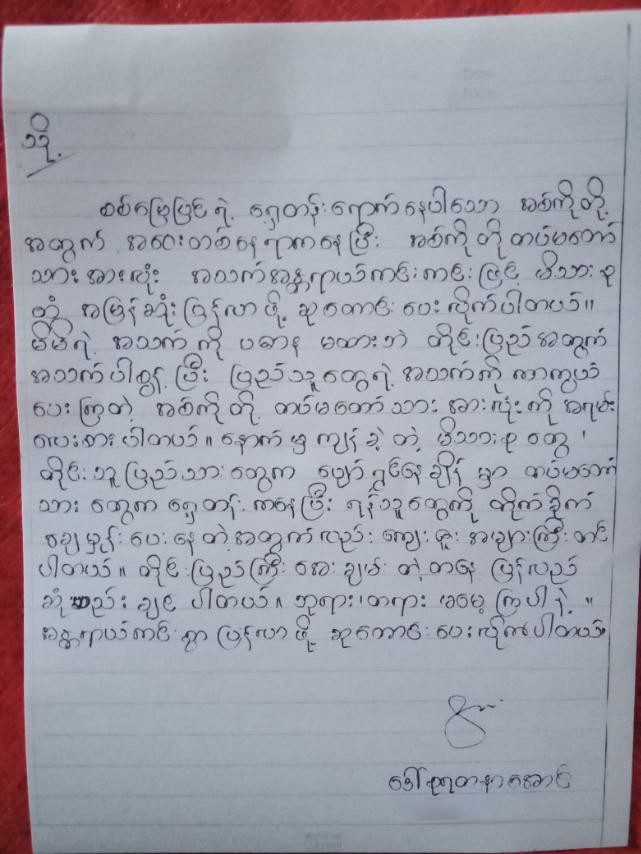 သို့
စစ်မြေပြင်ရဲ့ ရှေ့တန်းရောက်နေပါသော အစ်ကိုတို့
အတွက် အဝေးတစ်နေရာကနေပြီး အစ်ကိုတို့တပ်မတော်
သားအားလုံး အသက်အန္တရာယ်ကင်းကင်းဖြင့် မိသားစု
တွေဆီ အမြန်ဆုံးပြန်လာဖို့ ဆုတောင်းပေးလိုက်ပါတယ်။
မိမိရဲ့ အသက်ကို ပဓာန မထားဘဲ တိုင်းပြည်အတွက်
အသက်ပါစွန့်ပြီး ပြည်သူတွေရဲ့အသက်ကို ကာကွယ်
ပေးကြတဲ့ အစ်ကိုတို့ တပ်မတော်သားအားလုံးကို အရမ်း
လေးစားပါတယ်။ နောက်မှာကျန်ခဲ့တဲ့ မိသားစုတွေ၊
တိုင်းသူပြည်သားတွေက ပျော်ရွှင်နေချိန်မှာ တပ်မတော်
သားတွေက ရှေ့တန်းကနေပြီး ရန်သူတွေကို တိုက်ခိုက်
ချေမှုန်းပေးနေတဲ့အတွက်လည်း ကျေးဇူးအများကြီးတင်
ပါတယ်။ တိုင်းပြည်ကြီးအေးချမ်းတဲ့တနေ့ ပြန်လည်
ဆုံစည်းချင်ပါတယ်။ ဘုရား၊တရား မမေ့ကြပါနဲ့။
အန္တရာယ်ကင်းစွာပြန်လာဖို့ ဆုတောင်းပေးလိုက်ပါတယ်။
ဒေါ်ရတနာအောင်